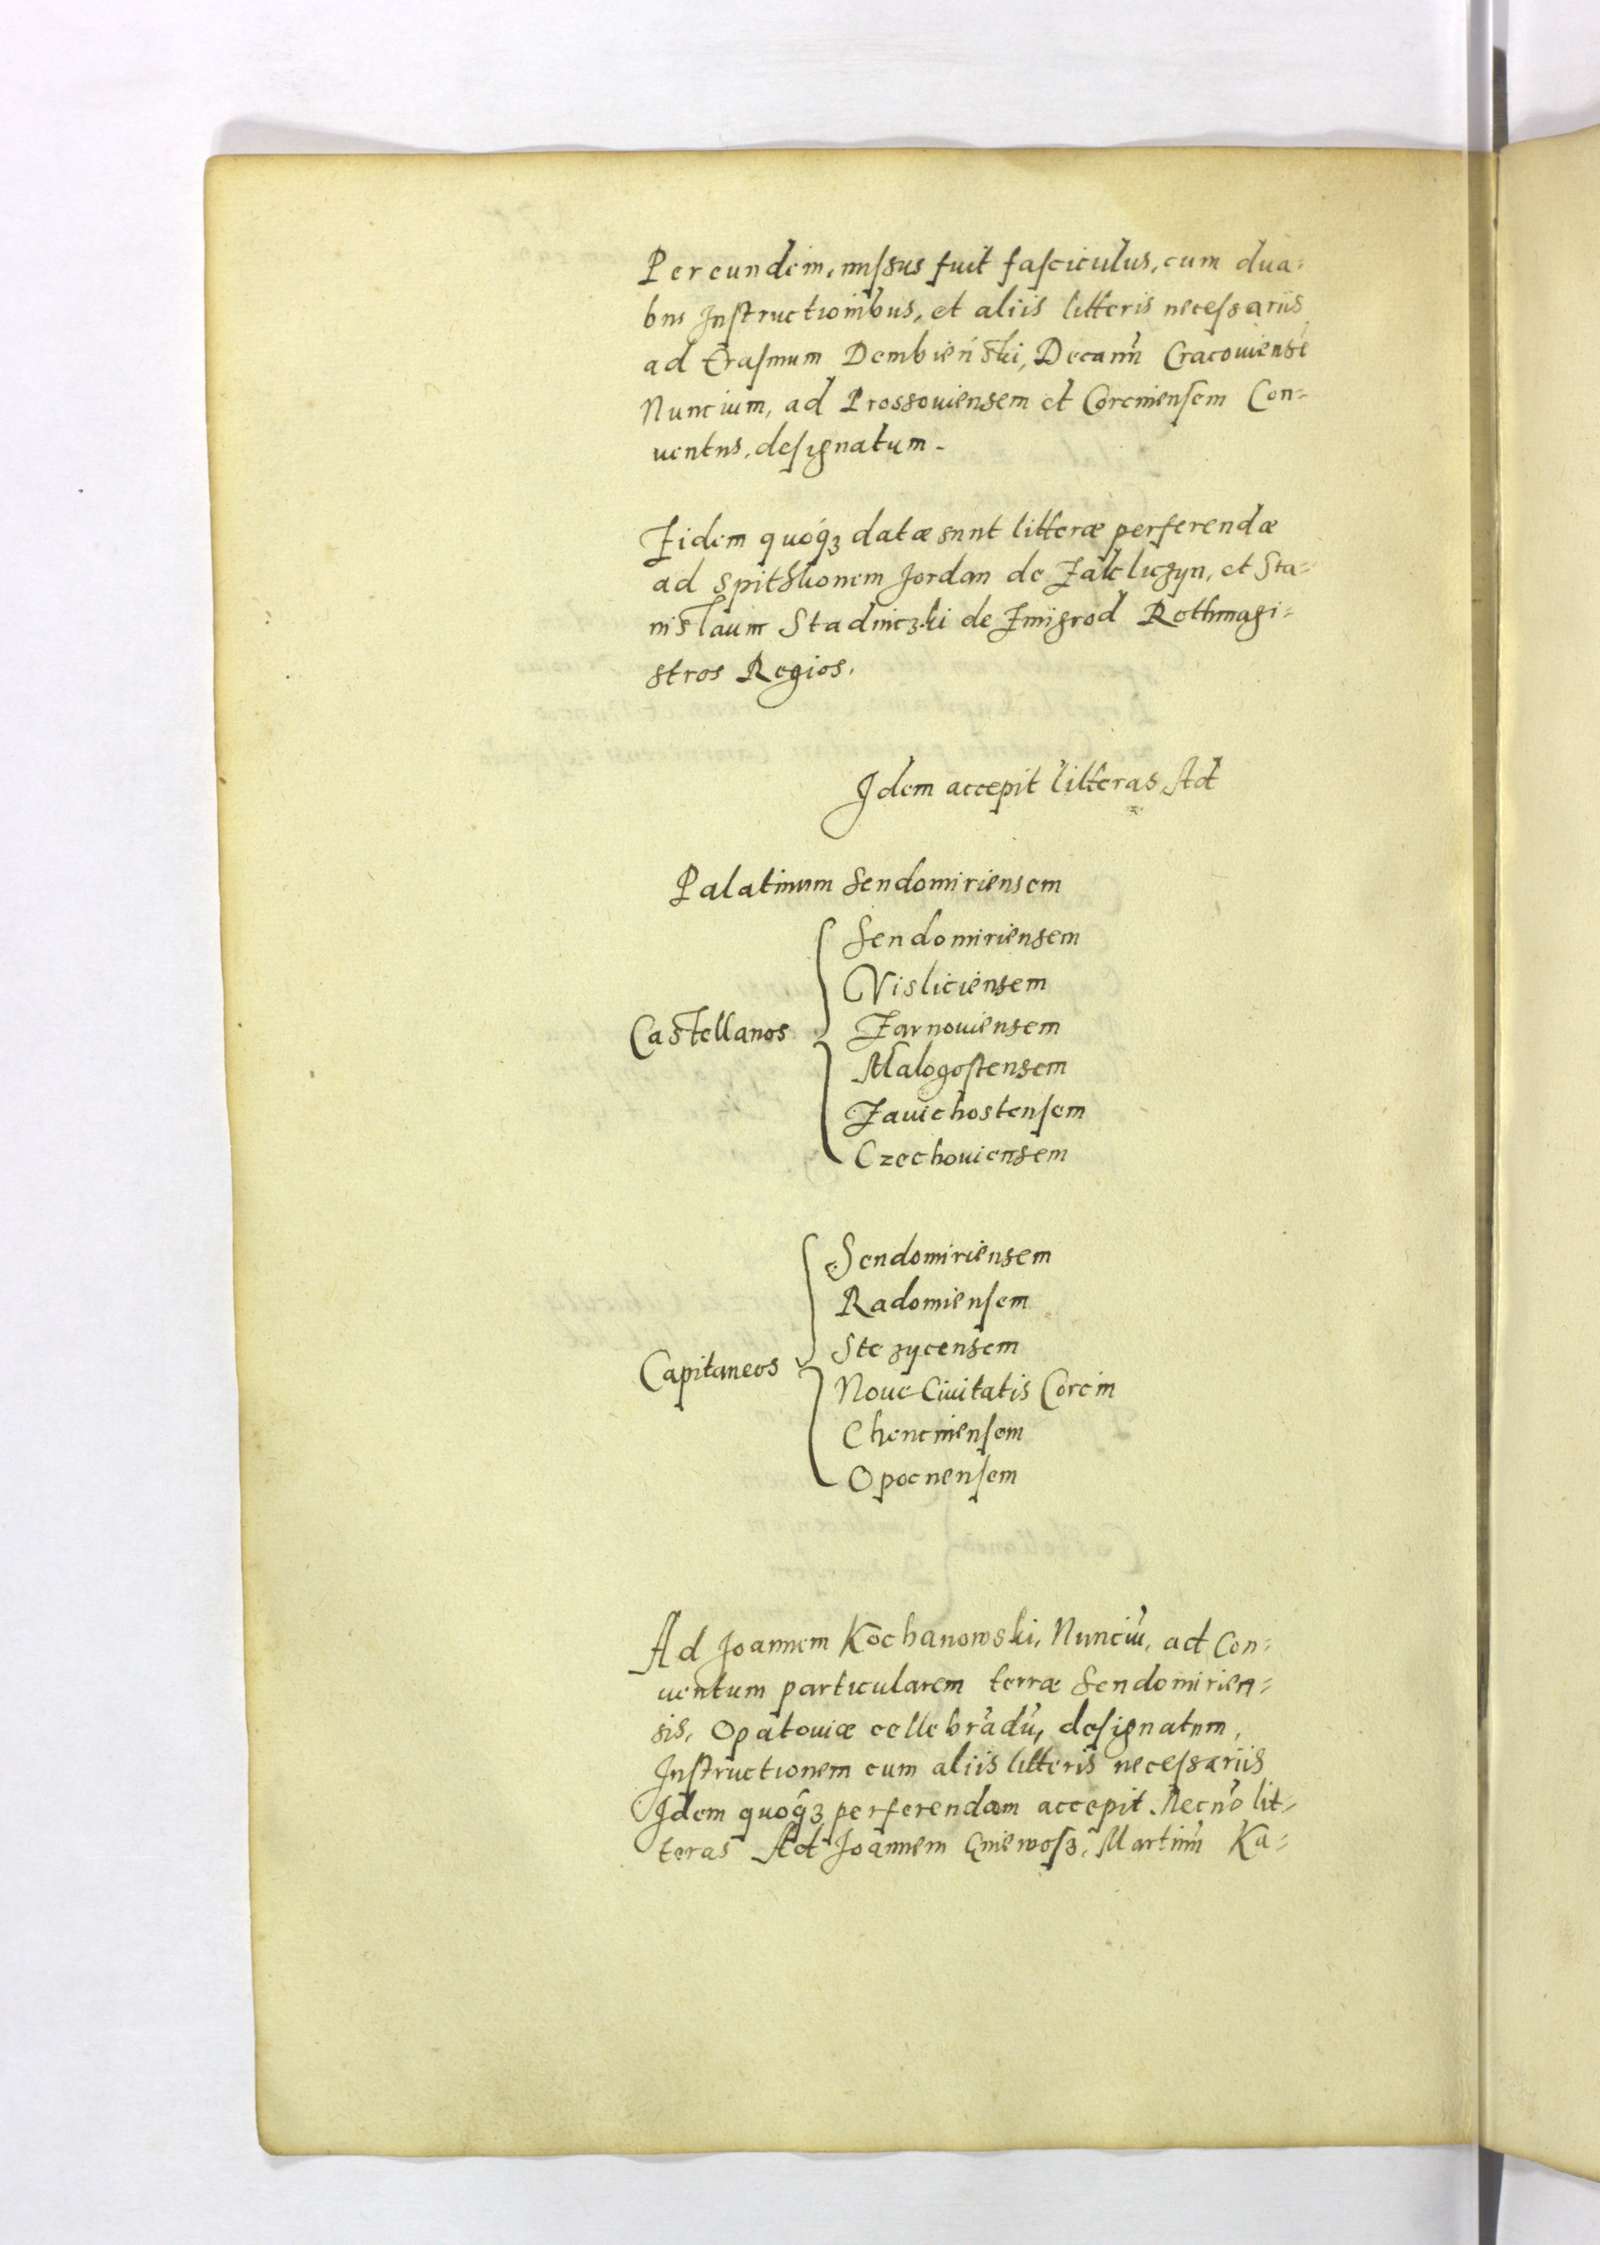 Per eundem, missus fuit fasciculus, cum dua=
bus Instructionibus, et aliis litteris necessariis
ad Erasmum Dembieński, Decanū Cracouiensē
Nuncium, ad Prossouiensem et Corcinensem Con=
uentus, designatum.
Eidem quoq₃ datæ sunt litteræ perferendæ
ad Spithkonem Jordan de Zakliczyn, et Sta=
nislaum Stadniczki de Zmigrod Rothmagi=
stros Regios.
Idem accepit litteras Ad
Palatinum Sendomiriensem
Castellanos
Sendomiriensem
Visliciensem
Zarnouiensem
Malogostensem
Zauichostensem
Czechouiensem
Capitaneos
Sendomiriensem
Radomiensem
Stezycensem
Noue Ciuitatis Corcin
Chencinensem
Opocnensem
Ad Joannem Kochanowski, Nunciū, ad Con=
uentum particularem terræ Sendomirien=
sis, Opatouiæ cellebrādū, designatum,
Instructionem cum aliis litteris necessariis
Idem quoq₃ perferendam accepit. Necnō lit=
teras Ad Joannem Gniewosz, Martinū Ka=